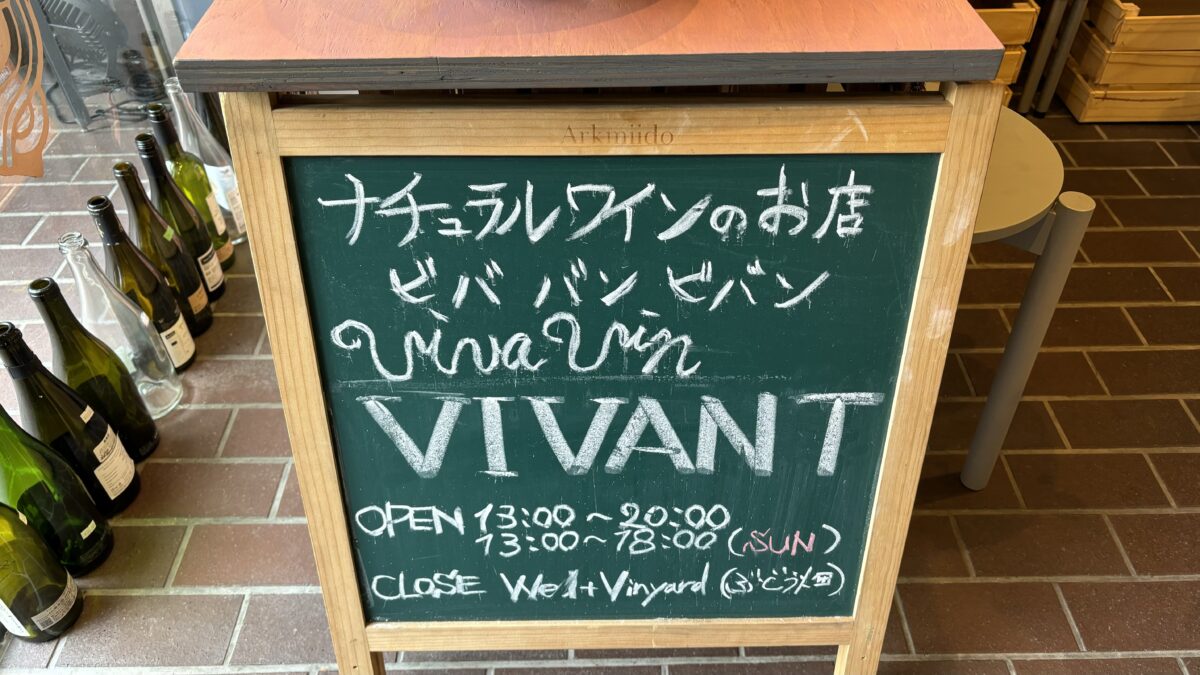 Arkmiido
ナチュラルワインのお店
ビバ バン ビバン
Viva Vin
VIVANT
OPEN 13:00～20:00
13:00～18:00 (SUN)
CLOSE Wed + Vinyard (ぶどう畑)